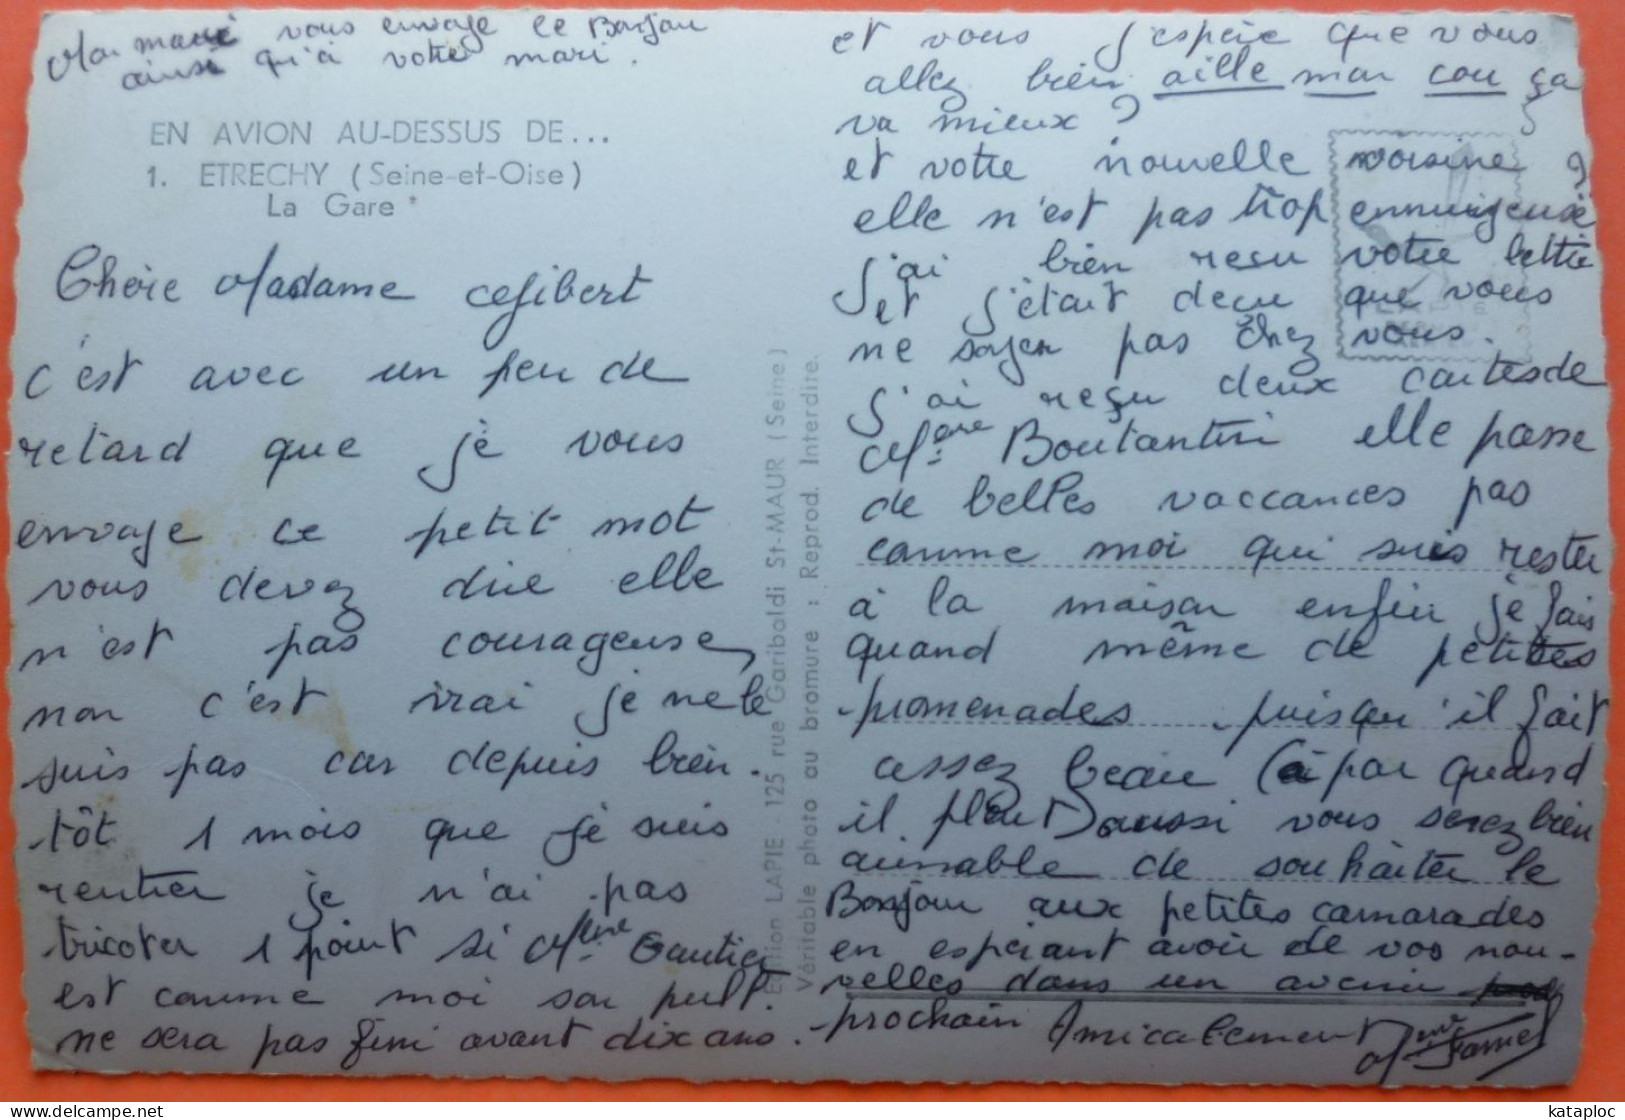 Mon marie vous envoye le Bonjour
ainsi qu'à votre mari.
EN AVION AU-DESSUS DE...
1. ETRECHY (Seine-et-Oise)
La Gare
Chère Madame Gibert
c'est avec un peu de
retard que je vous
envoye ce petit mot
vous devez dire elle
n'est pas courageuse,
non c'est vrai je ne le
suis pas car depuis bien-
tôt 1 mois que je suis
rentrer je n'ai pas
tricoter 1 point si Mme Gautier
est comme moi son pull
ne sera pas fini avant dix ans.
Edition LAPIE - 125 rue Gariboldi St-MAUR (Seine)
Véritable photo au bromure : Reprod. Interdite.
et vous j'espère que vous
allez bien aille mon cou ça
va mieux ?
et votre nouvelle voisine ?
elle n'est pas trop ennuyeuse
j'ai bien reçu votre lettre
et j'était decu que vous
ne soyen pas chez vous.
j'ai reçu deux cartes de
Boutantin elle passe
de belles vaccances pas
comme moi qui suis rester
à la maison enfin je fais
quand même de petites
promenades puisqu'il fait
assez beau (à par quand
il pleut) aussi vous serez bien
aimable de souhaiter le
Bonjour aux petites camarades
en espérant avoir de vos nou-
velles dans un avenir
prochain Amicalement
kataploc